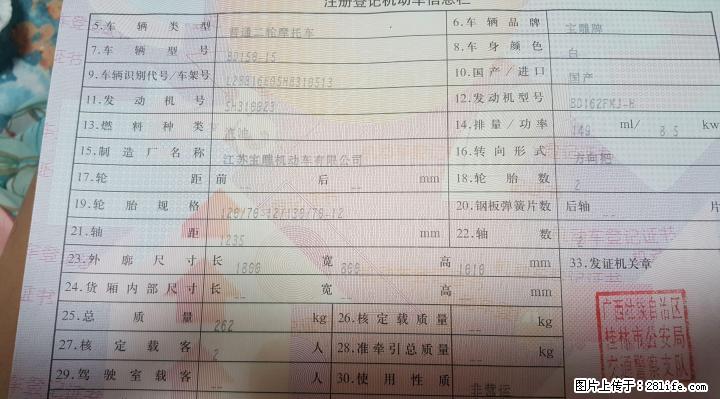 注册登记机动车信息栏
5.车辆类型 普通二轮摩托车 6.车辆品牌 宝雕牌
7.车辆型号 BD150-15 8.车身颜色 白
9.车辆识别代号/车架号 10.国产/进口 国产
11.发动机号 5H310823 12.发动机型号 BD162FMJ-H
13.燃料种类 汽油 14.排量/功率 149 ml/ 8.5 kw
15.制造厂名称 江苏宝雕机动车有限公司 16.转向形式 方向把
17.轮距 前 -- 后 -- mm 18.轮胎数 2
19.轮胎规格 120/70-12/130/70-12 20.钢板弹簧片数 后轴 -- 片
21.轴距 1235 mm 22.轴数 2
23.外廓尺寸 长 1800 宽 800 高 1010 mm 33.发证机关章
24.货厢内部尺寸 长 -- 宽 -- 高 -- mm
25.总质量 262 kg 26.核定载质量 -- kg
27.核定载客 2 人 28.准牵引总质量 -- kg
29.驾驶室载客 -- 人 30.使用性质 非营运
广西壮族自治区
桂林市公安局
交通警察支队
图片上传于：28life.com